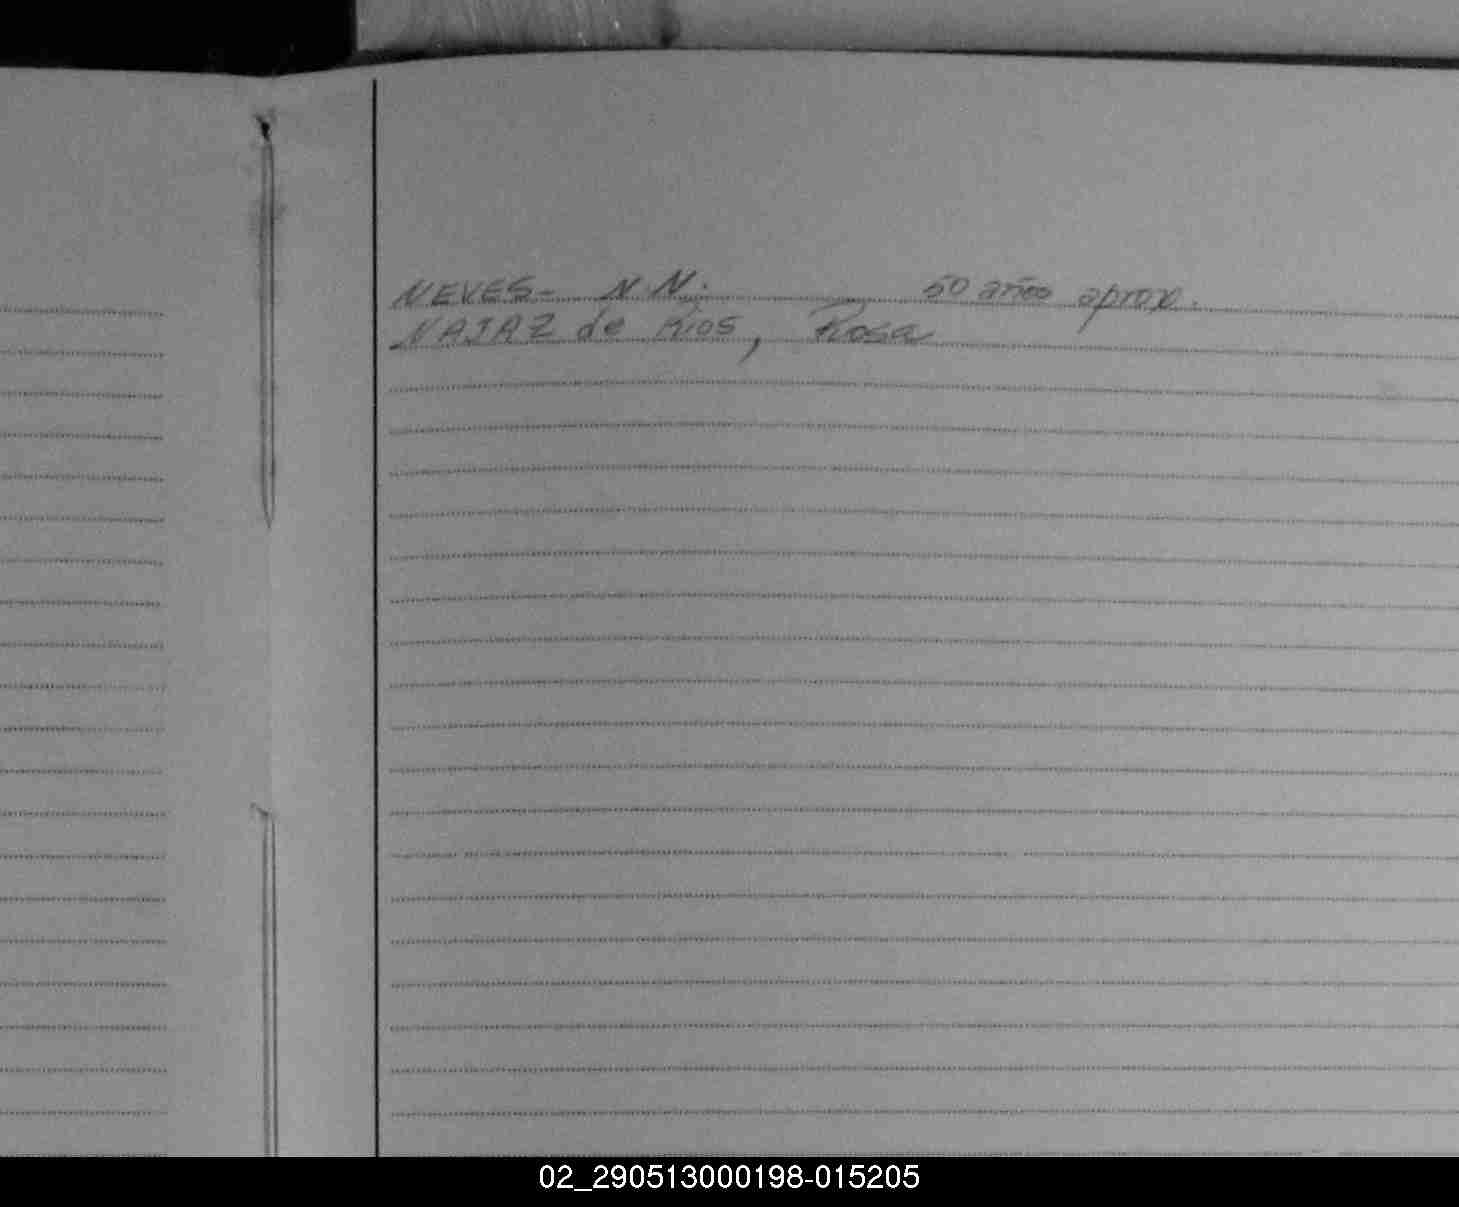 NEVES- N.N. 50 años aprox.
NAJAZ de Rios, Rosa
02_290513000198-015205